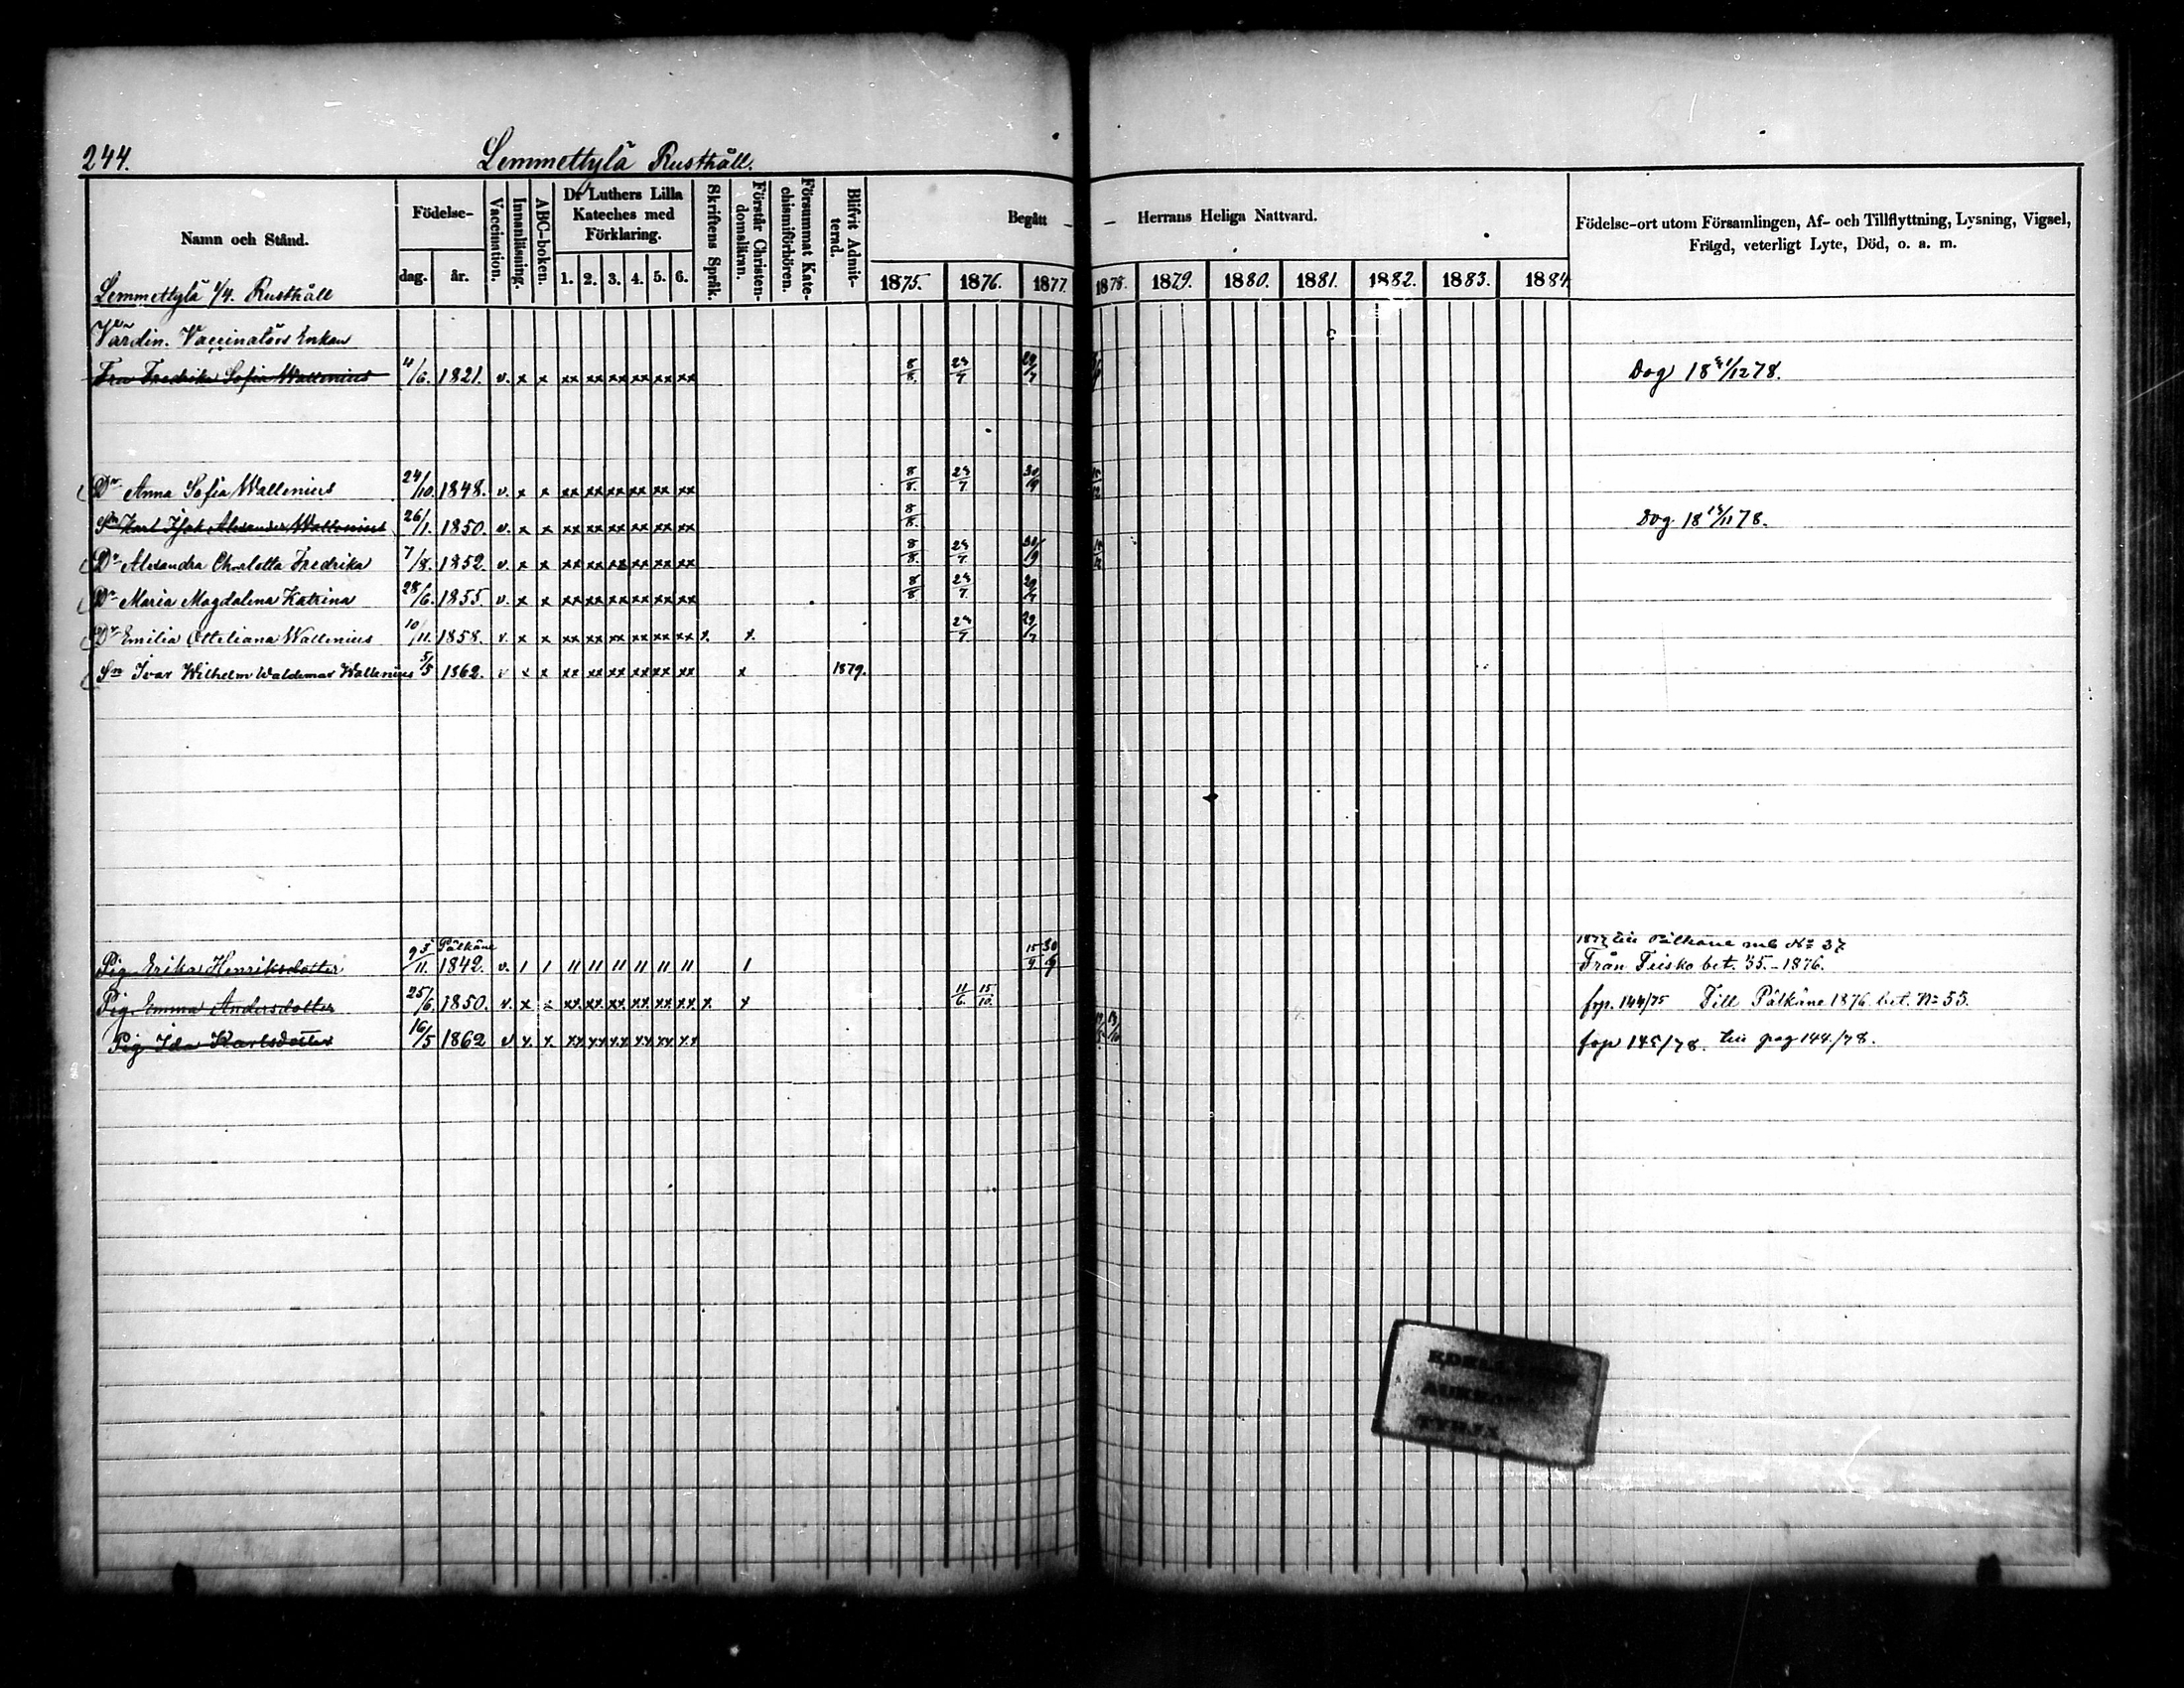 244.
Lemmettylä Rusthåll.
Namn och Stånd.
Födelse-
dag. år.
Vaccination.
Innanläsning.
ABC-boken.
Dr Luthers Lilla
Kateches med
Förklaring.
1. 2. 3. 4. 5. 6.
Skriftens Språk.
Förstår Christen-
domsläran.
Försummat Kate-
chismiförhören.
Blifvit Admit-
terad.
Begått – – Herrans Heliga Nattvard.
1875. 1876. 1877. 1878. 1879. 1880. 1881. 1882. 1883. 1884.
Födelse-ort utom Församlingen, Af- och Tillflyttning, Lysning, Vigsel,
Frägd, veterligt Lyte, Död, o. a. m.
Lemmettylä 1/4. Rusthåll
Värdin. Vaccinatörs Enkan
Fru Fredrika Sofia Wallenius 4/6. 1821. v. x x xx xx xx xx xx xx 8/8. 23/7 29/7 Dog 18 21/12 78.
Dr Anna Sofia Wallenius 24/10. 1848. v. x x xx xx xx xx xx xx 8/8. 23/7 30/9
Sn Karl Isak Alexander Wallenius 26/1. 1850. v. x x xx xx xx xx xx xx 8/8. Dog 18 /11 78.
Dr Alexandra Charlotta Fredrika 7/8. 1852 v. x x xx xx xx xx xx xx 8/8. 23/7. 30/9
Dr Maria Magdalena Katrina 28/6. 1855. v. x x xx xx xx xx xx xx 8/8. 23/7 29/7
Dr Emilia Otteliana Wallenius 10/11. 1858. v. x x xx xx xx xx xx xx x. x. 23/7 29/7
Sn Ivar Wilhelm Waldemar Wallenius 5/5 1862. v x x xx xx xx xx xx xx x 1879.
Pälkäne 1877 till Pälkäne mb No 37
Pig. Erika Henriksdotter 1842. v. / / // // // // // // / 15/9 30/9 Från Teisko bet. 35. – 1876.
Pig. Emma Andersdotter 25/6. 1850. v. x x xx xx xx xx xx xx x. x 11/6. 15/10. frp. 144/75 Till Pälkäne 1876. bet. No 55.
Pig Ida Karlsdotter 16/5 1862 v x. x. xx xx xx xx xx xx frp 145/78. till pag 144./78.